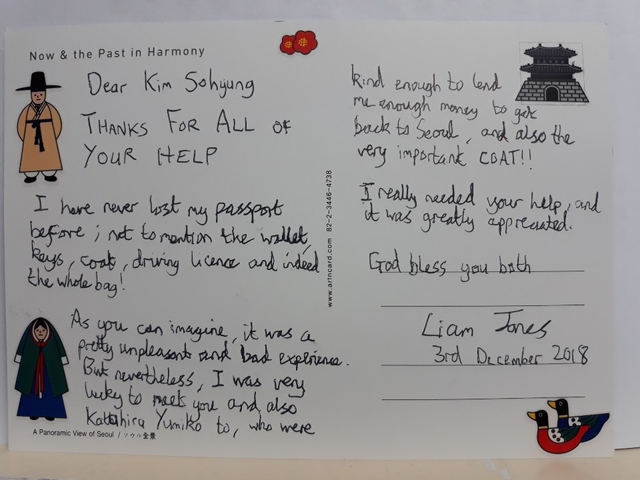 Now & the Past in Harmony
Dear Kim Sohyung
THANKS FOR ALL OF
YOUR HELP
I have never lost my passport
before; not to mention the wallet,
keys, coat, driving licence and indeed
the whole bag!
As you can imagine, it was a
pretty unpleasant and bad experience.
But nevertheless, I was very
lucky to meet you and also
Katahira Yumiko to, who were
A Panoramic View of Seoul / ソウル全景
www.artncard.com 82-2-3446-4738
kind enough to lend
me enough money to get
back to Seoul, and also the
very important COAT!!
I really needed your help, and
it was greatly appreciated.
God bless you both
Liam Jones
3rd December 2018